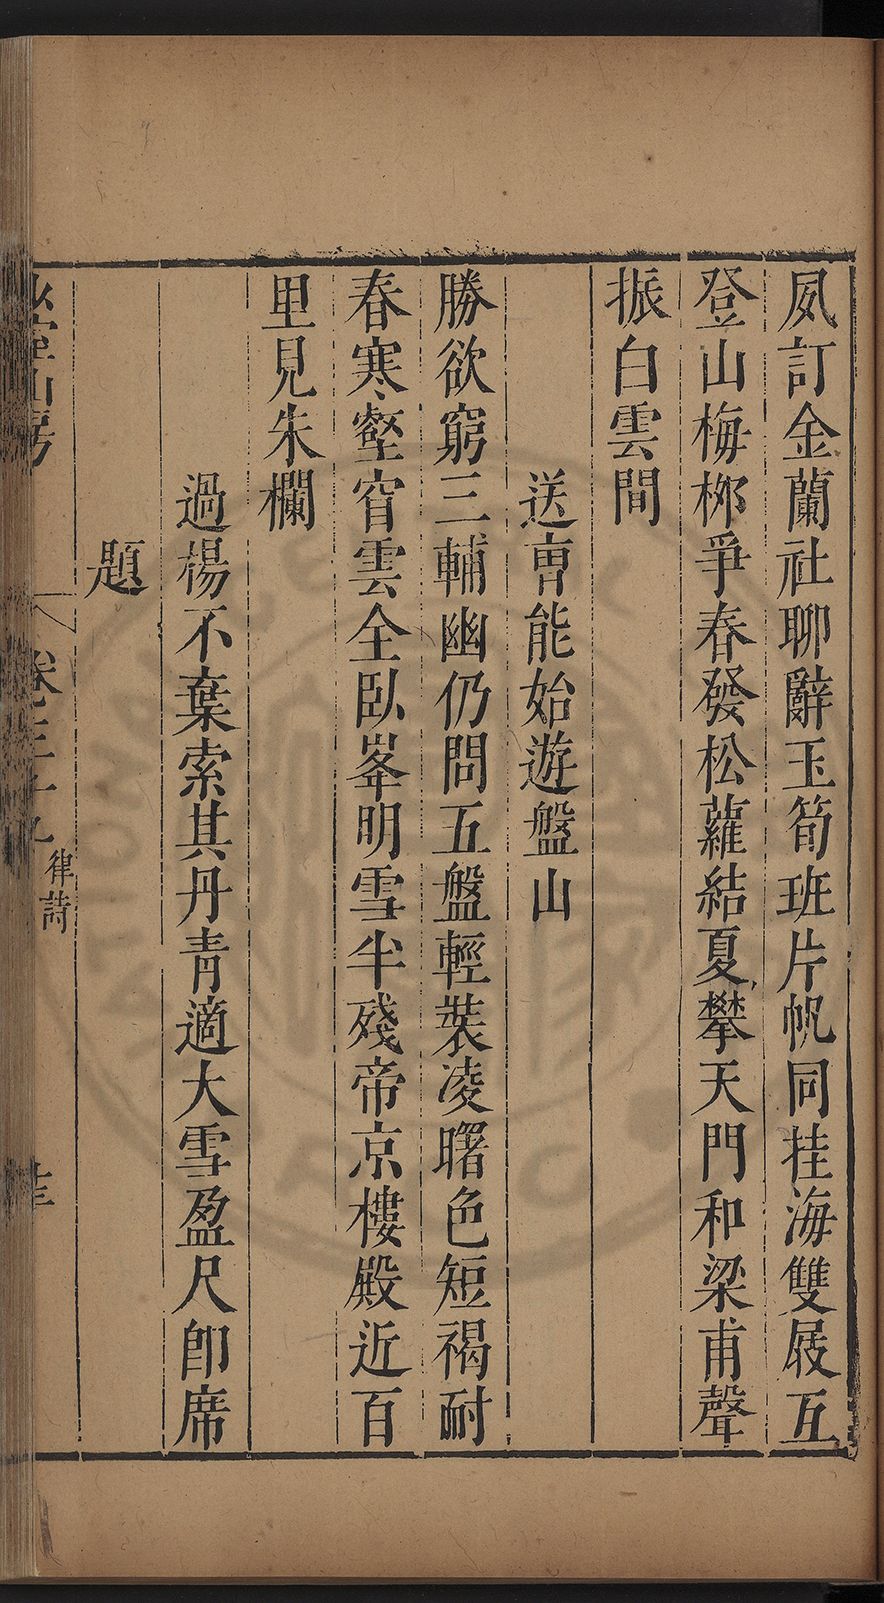 夙訂金蘭社聊辭玉筍班片帆同挂海雙屐互
登山梅栁爭春發松蘿結夏攀天門和梁甫聲
振白雲間
送曺能始遊盤山
勝欲窮三輔幽仍問五盤輕裝凌曙色短褐耐
春寒壑窅雲全臥峯明雪半殘帝京樓殿近百
里見朱欄
過楊不棄索其丹青適大雪盈尺卽席
題
山房
卷三十九
律詩